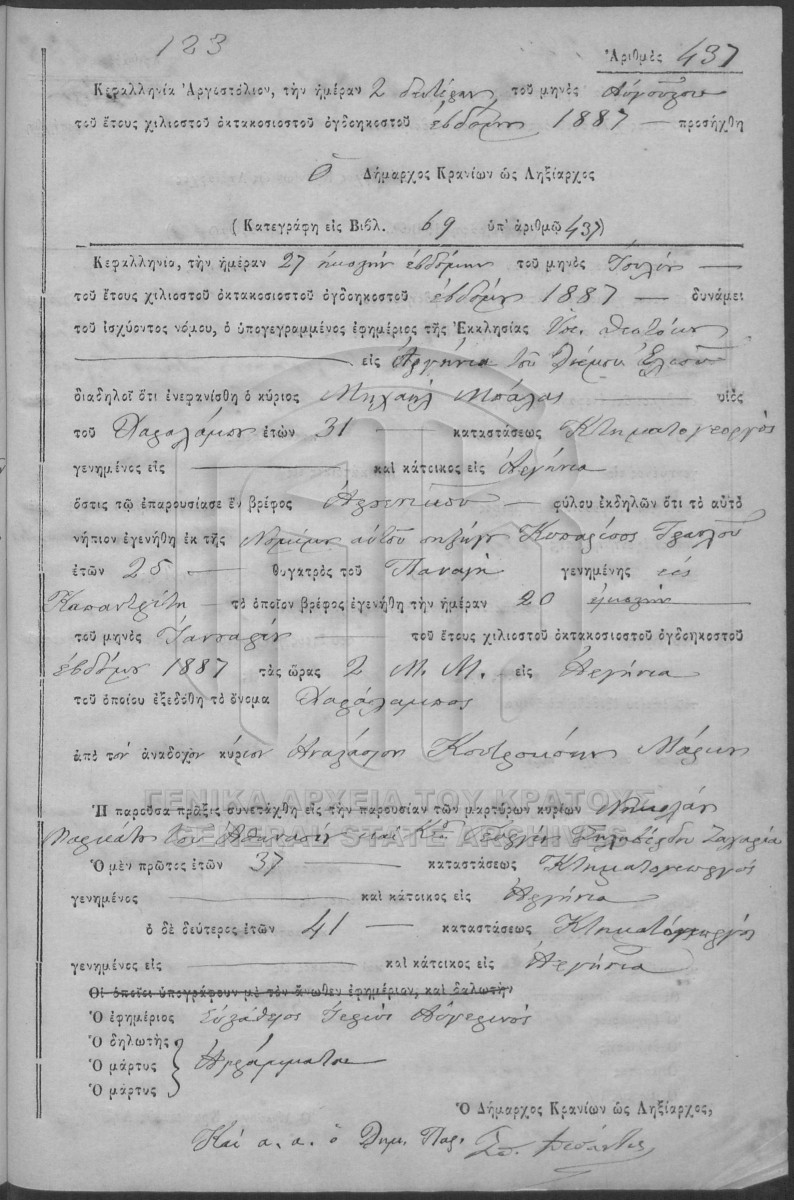 123
Ἀριθμὸς 437
Κεφαλληνία Ἀργοστόλιον, τὴν ἡμέραν 2 δευτέραν τοῦ μηνὸς Αὐγούστου
τοῦ ἔτους χιλιοστοῦ ὀκτακοσιοστοῦ ὀγδοηκοστοῦ ἑβδόμου 1887 — προσήχθη
Ὁ Δήμαρχος Κρανίων ὡς Ληξίαρχος
(Κατεγράφη εἰς Βιβλ. 69 ὑπ' ἀριθμῷ 437)
Κεφαλληνία, τὴν ἡμέραν 27 εἰκοστὴν ἑβδόμην τοῦ μηνὸς Ἰουλίου —
τοῦ ἔτους χιλιοστοῦ ὀκτακοσιοστοῦ ὀγδοηκοστοῦ ἑβδόμου 1887 — δυνάμει
τοῦ ἰσχύοντος νόμου, ὁ ὑπογεγραμμένος ἐφημέριος τῆς Ἐκκλησίας Ὑπ. Θεοτόκου
— εἰς Ἀργίνια τοῦ Δήμου
διαδηλοῖ ὅτι ἐνεφανίσθη ὁ κύριος Μιχαὴλ Μπάλας — υἱὸς
τοῦ Χαραλάμπου ἐτῶν 31 — καταστάσεως Κτηματογεωργὸς
γενημένος εἰς — καὶ κάτοικος εἰς Ἀργίνια
ὅστις τῷ ἐπαρουσίασε ἓν βρέφος Ἀρσενικοῦ — φύλου ἐκδηλῶν ὅτι τὸ αὐτὸ
νήπιον ἐγενήθη ἐκ τῆς Νομίμου αὐτοῦ συζύγου Κυπαρίσσος Τραυλοῦ
ἐτῶν 25 — θυγατρὸς τοῦ Παναγῆ γενημένης εἰς
Καπαντρίτη — τὸ ὁποῖον βρέφος ἐγενήθη τὴν ἡμέραν 20 εἰκοστὴν —
τοῦ μηνὸς Ἰανουαρίου — τοῦ ἔτους χιλιοστοῦ ὀκτακοσιοστοῦ ὀγδοηκοστοῦ
ἑβδόμου 1887 τὰς ὥρας 2 Μ. Μ. εἰς Ἀργίνια
τοῦ ὁποίου ἐξεδόθη τὸ ὄνομα Χαράλαμπος
ἀπὸ τὸν ἀναδοχὸν κύριον Ἀναστάσιον Μάρκου
ΓΕΝΙΚΑ ΑΡΧΕΙΑ ΤΟΥ ΚΡΑΤΟΥΣ
Ἡ παροῦσα πρᾶξις συνετάχθη εἰς τὴν παρουσίαν τῶν μαρτύρων κυρίων Νικολάου
τοῦ Ἀθανασίου καὶ Γεωργίου Ζαχαρία
GENERAL STATE ARCHIVES
Ὁ μὲν πρῶτος ἐτῶν 37 — καταστάσεως Κτηματογεωργὸς
γενημένος — καὶ κάτοικος εἰς Ἀργίνια
ὁ δὲ δεύτερος ἐτῶν 41 — καταστάσεως Κτηματογεωργὸς
γενημένος εἰς — καὶ κάτοικος εἰς Ἀργίνια
Οἱ ὁποῖοι ὑπογράφουν μὲ τὸν ἄνωθεν ἐφημέριον, καὶ δηλωτὴν
Ὁ ἐφημέριος Εὐστάθιος Ἱερεὺς Αὐγερινὸς
Ὁ δηλωτὴς
Ὁ μάρτυς Ἀγράμματοι
Ὁ μάρτυς
Ὁ Δήμαρχος Κρανίων ὡς Ληξίαρχος,
Καὶ α. α. ὁ Δημ. Παρ.